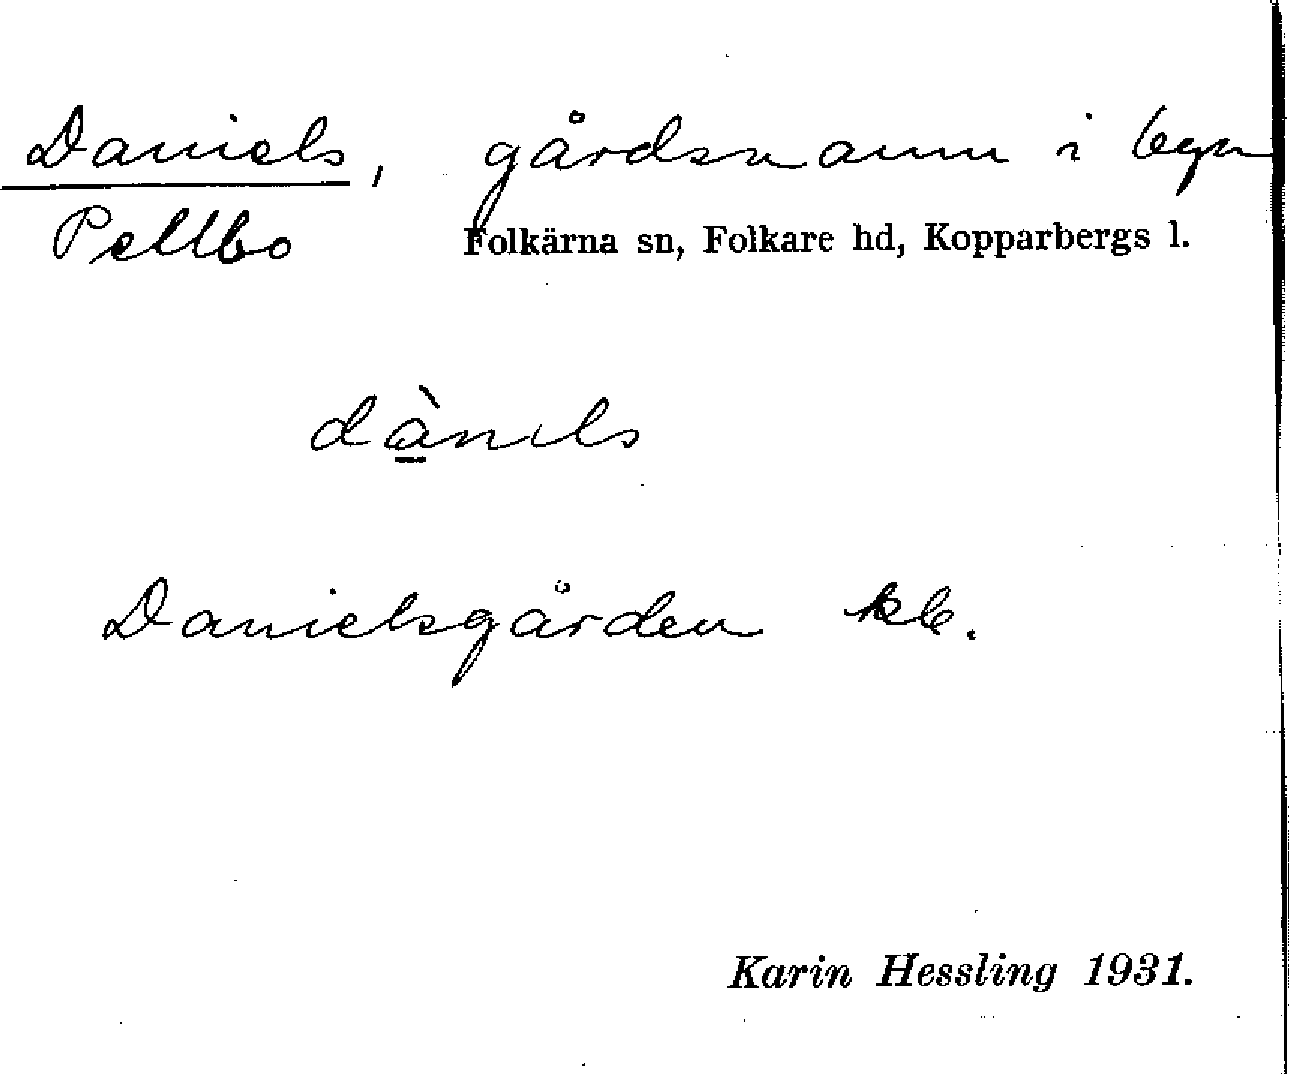 Daniels, gårdsnamn i byn
Pellbo Folkärna sn, Folkare hd, Kopparbergs l.
dànıls
Danielsgården kb.
Karin Hessling 1931.